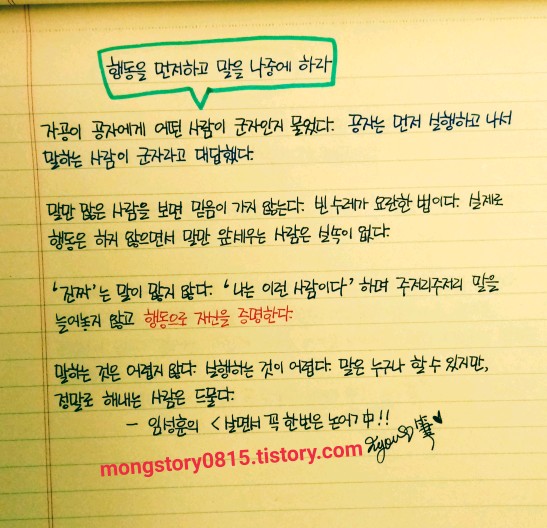 행동을 먼저하고 말을 나중에 하라
자공이 공자에게 어떤 사람이 군자인지 물었다. 공자는 먼저 실행하고 나서
말하는 사람이 군자라고 대답했다.
말만 많은 사람을 보면 믿음이 가지 않는다. 빈 수레가 요란한 법이다. 실제로
행동은 하지 않으면서 말만 앞세우는 사람은 실속이 없다.
'진짜'는 말이 많지 않다. '나는 이런 사람이다' 하며 주저리주저리 말을
늘어놓지 않고 행동으로 자신을 증명한다.
말하는 것은 어렵지 않다. 실행하는 것이 어렵다. 말은 누구나 할 수 있지만,
정말로 해내는 사람은 드물다.
- 임성훈의 <살면서 꼭 한번은 논어>中!!
mongstory0815.tistory.com